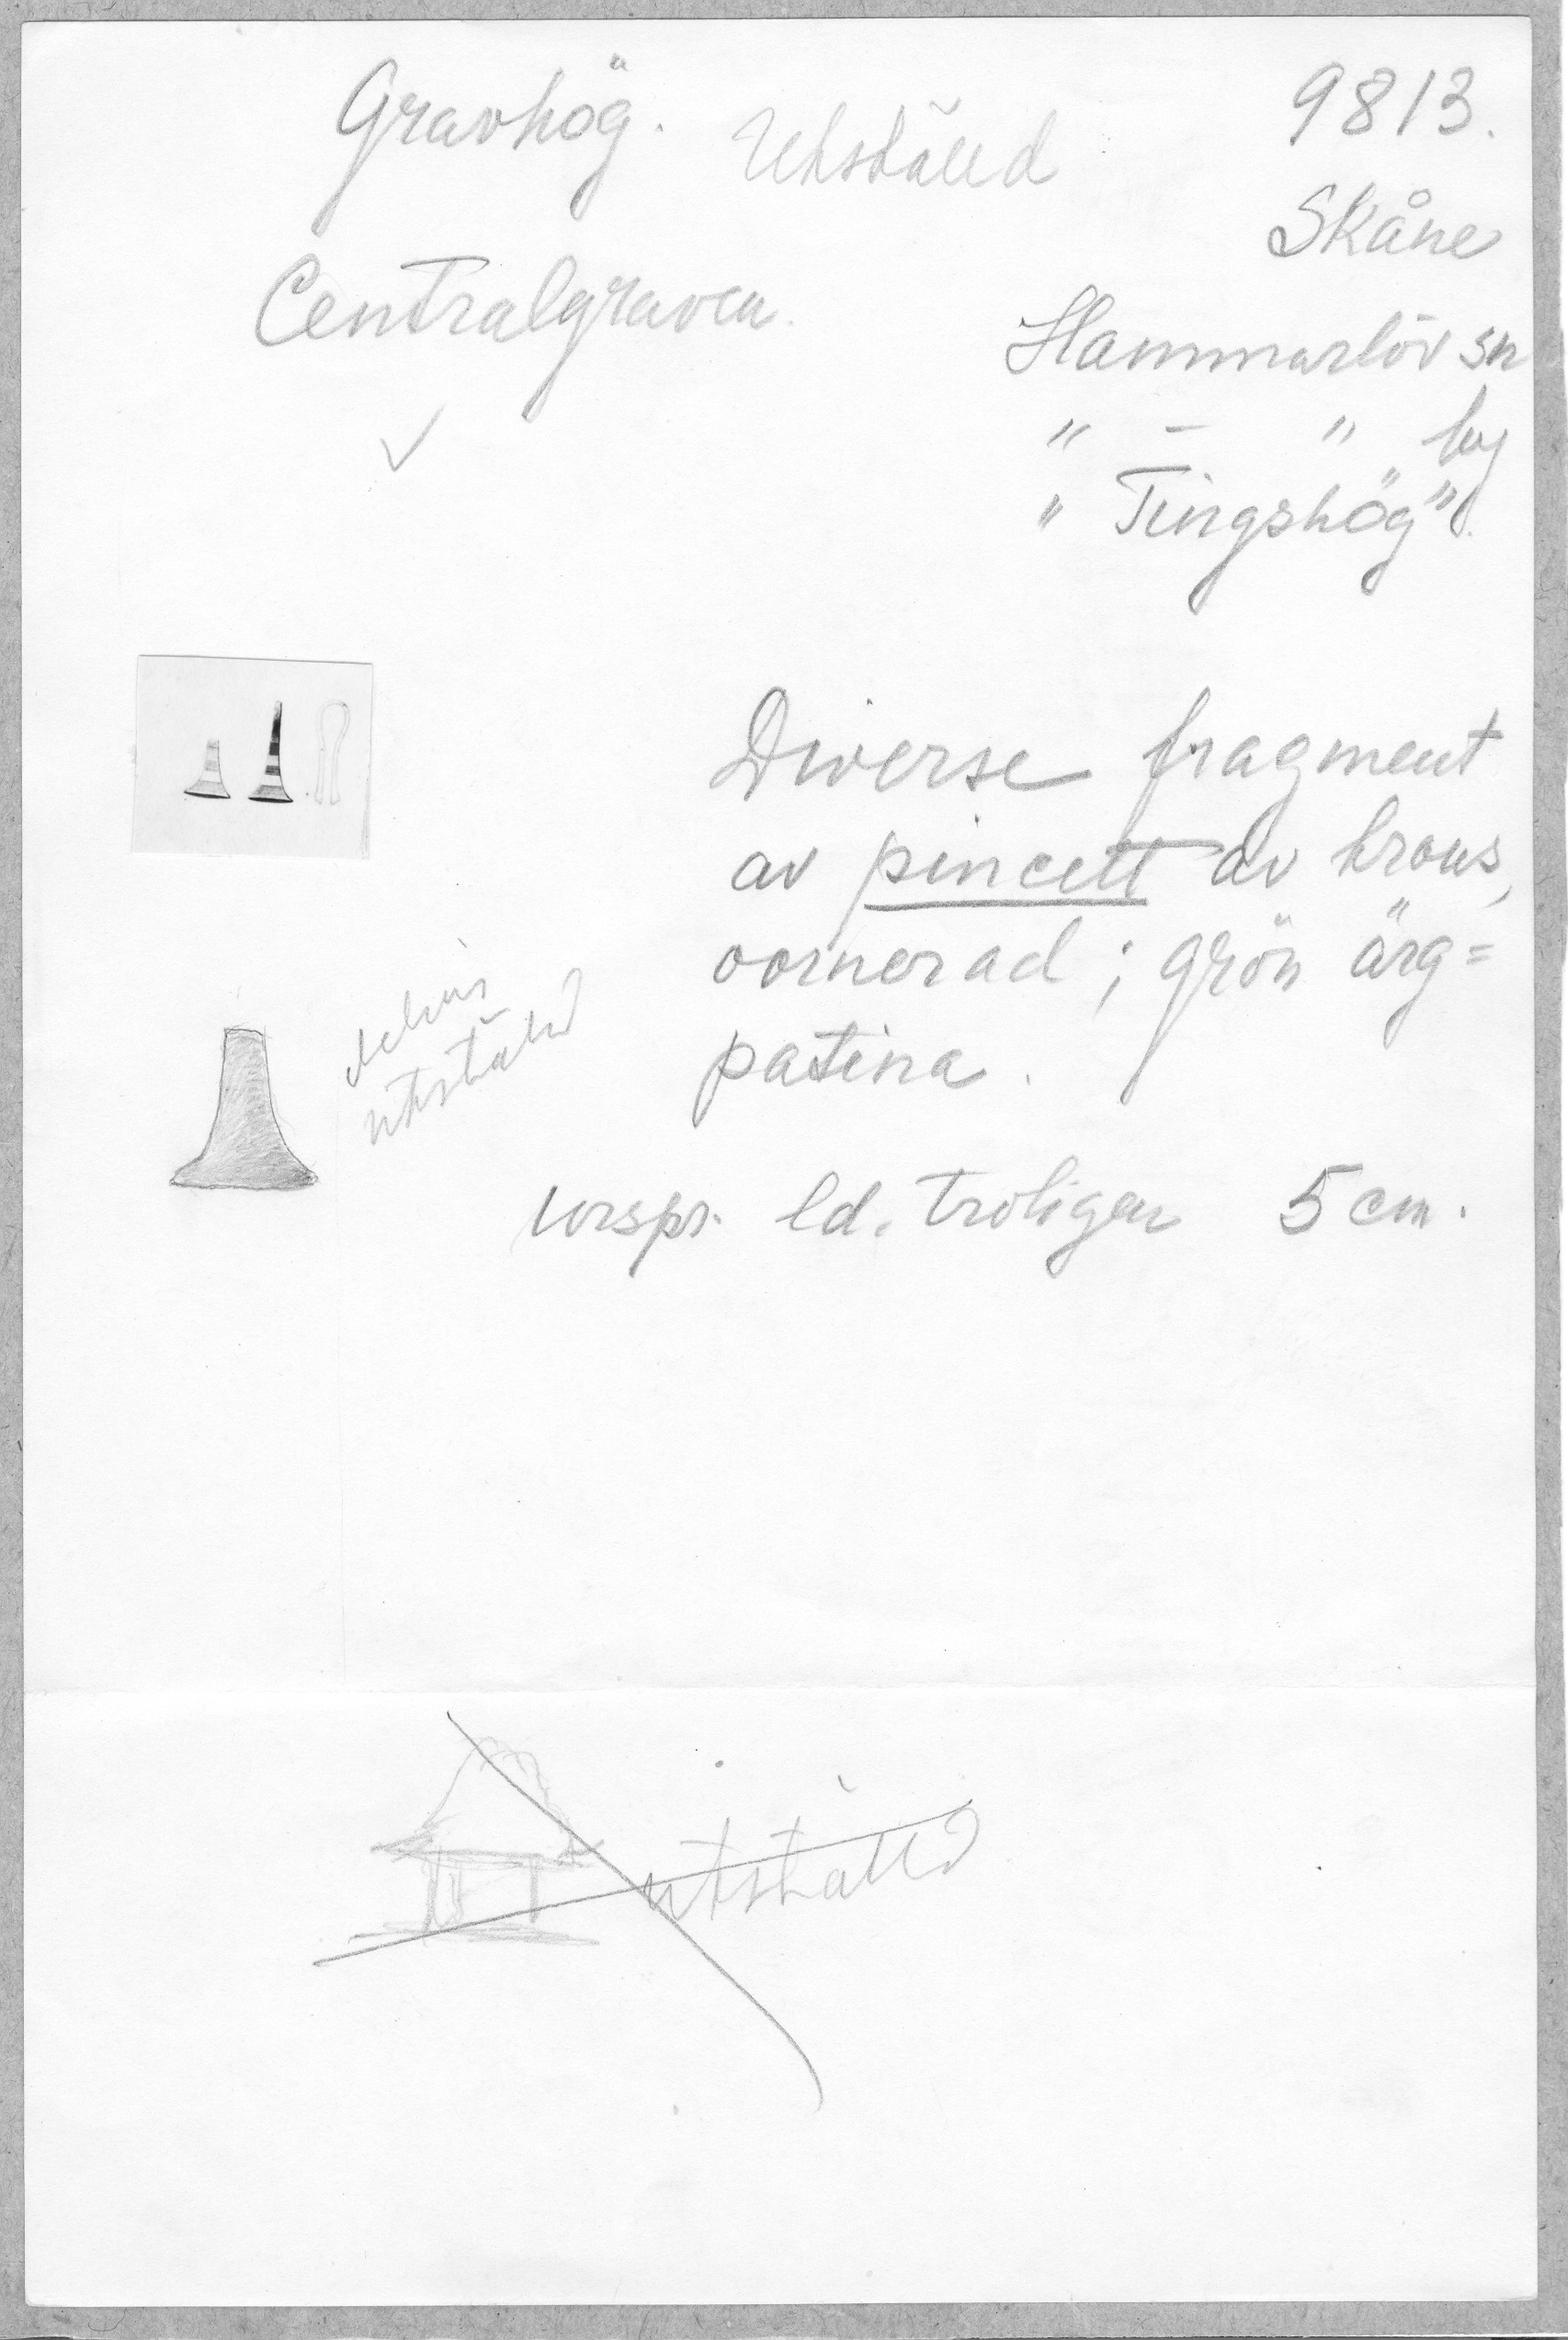 Gravhög. Utställd
9813.
Skåne
Centralgraven.
Hammarlöv sn
" – " by
"Tingshög".
Diverse fragment
av pincett av brons,
oornerad; grön ärg=
patina.
delvis
utställd
urspr. ld. troligen 5 cm.
utställd